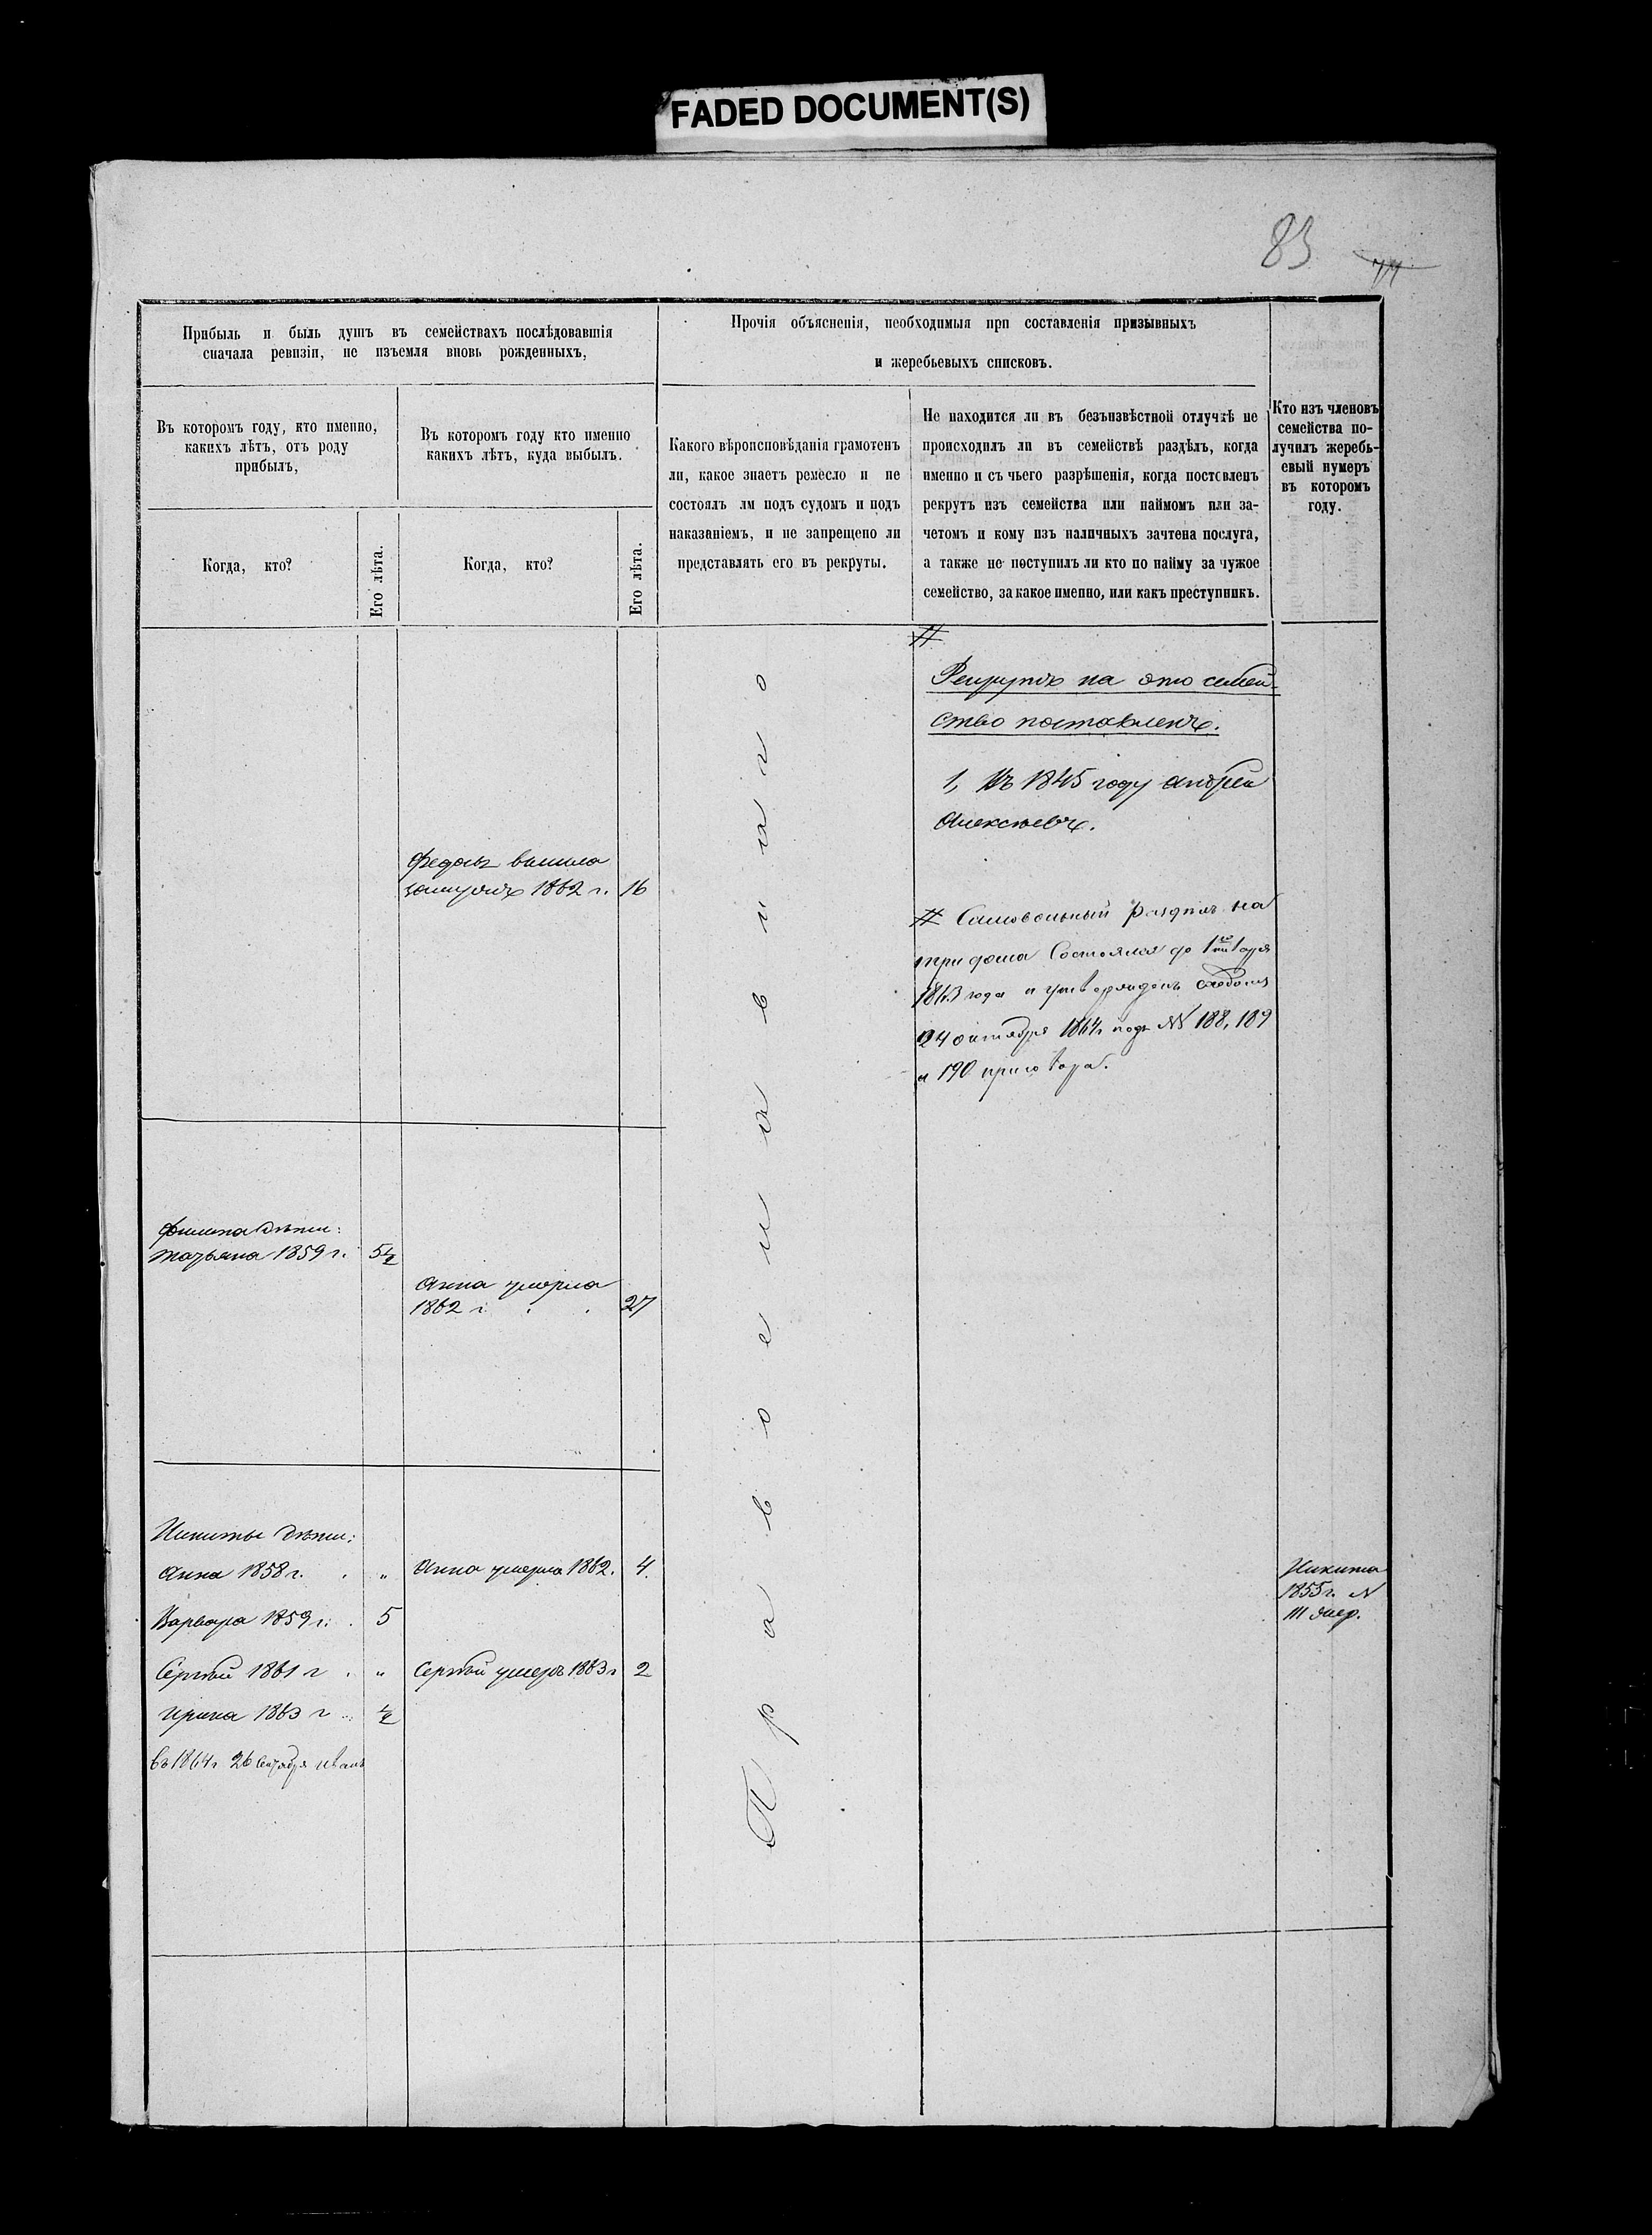 FADED DOCUMENT(S)
83
Прибыль и быль душъ въ семействахъ послѣдовавшія
сначала ревизіи, не изъемля вновь рожденныхъ,
Прочія объясненія, необходимыя при составленія призывныхъ
и жеребьевыхъ списковъ.
Въ которомъ году, кто именно,
какихъ лѣтъ, отъ роду
прибылъ,
Въ которомъ году кто именно
какихъ лѣтъ, куда выбылъ.
Какого вѣроисповѣданія грамотенъ
ли, какое знаетъ ремесло и не
состоялъ лм подъ судомъ и подъ
наказаніемъ, и не запрещено ли
представлять его въ рекруты.
Не находится ли въ безъизвѣстной отлучкѣ не
происходилъ ли въ семействѣ раздѣлъ, когда
именно и съ чьего разрѣшенія, когда поставленъ
рекрутъ изъ семейства или наймомъ или за-
четомъ и кому изъ наличныхъ зачтена послуга,
а также не поступилъ ли кто по найму за чужое
семейство, за какое именно, или какъ преступникъ.
Кто изъ членовъ
семейства по-
лучилъ жеребь-
евый нумеръ
въ которомъ
году.
Когда, кто?
Его лѣта.
Когда, кто?
Его лѣта.
#
Рекрутъ на это семей-
ство поставленъ.
1, Въ 1845 году Андрей
Алексѣевъ.
вышла
замужъ 1862 г. 16
# Самовольный раздѣлъ на
три дома состоялся до 1го Января
1863 года и утвержденъ сходомъ
24 октября 1864 г подъ № 188, 189
и 190 приговора.
Филипа дѣти:
Татьяна 1859 г. 5½
Анна умерла
1862 г. 27
Никиты дѣти:
Анна 1858 г. " Анна умерла 1862. 4.
Варвара 1859 г. 5
Сергѣй 1861 г. " Сергѣй умеръ 1863 г 2
Ирина 1863 г. ½
въ 1864 г 26 Сентября Иванъ
Никита
1855 г. №
111 жер.
Православнаго